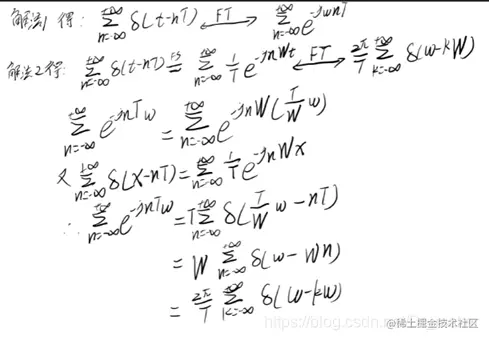 解法1得: \sum_{n=-\infty}^{+\infty} δ(t-nT) \overset{FT}{\longleftrightarrow} \sum_{n=-\infty}^{+\infty} e^{-jwnT}
解法2得: \sum_{n=-\infty}^{+\infty} δ(t-nT) \overset{FS}{=} \sum_{n=-\infty}^{+\infty} \frac{1}{T} e^{-jnWt} \overset{FT}{\longleftrightarrow} \frac{2π}{T} \sum_{k=-\infty}^{+\infty} δ(w-kW)
\sum_{n=-\infty}^{+\infty} e^{-jnTw} = \sum_{n=-\infty}^{+\infty} e^{-jnW(\frac{T}{W}w)}
又 \sum_{n=-\infty}^{+\infty} δ(x-nT) = \sum_{n=-\infty}^{+\infty} \frac{1}{T} e^{-jnWx}
∴ \sum_{n=-\infty}^{+\infty} e^{-jnTw} = T \sum_{n=-\infty}^{+\infty} δ(\frac{T}{W}w-nT)
= W \sum_{n=-\infty}^{+\infty} δ(w-Wn)
= \frac{2π}{T} \sum_{k=-\infty}^{+\infty} δ(w-kW)
https://blog.csdn.n
@稀土掘金技术社区